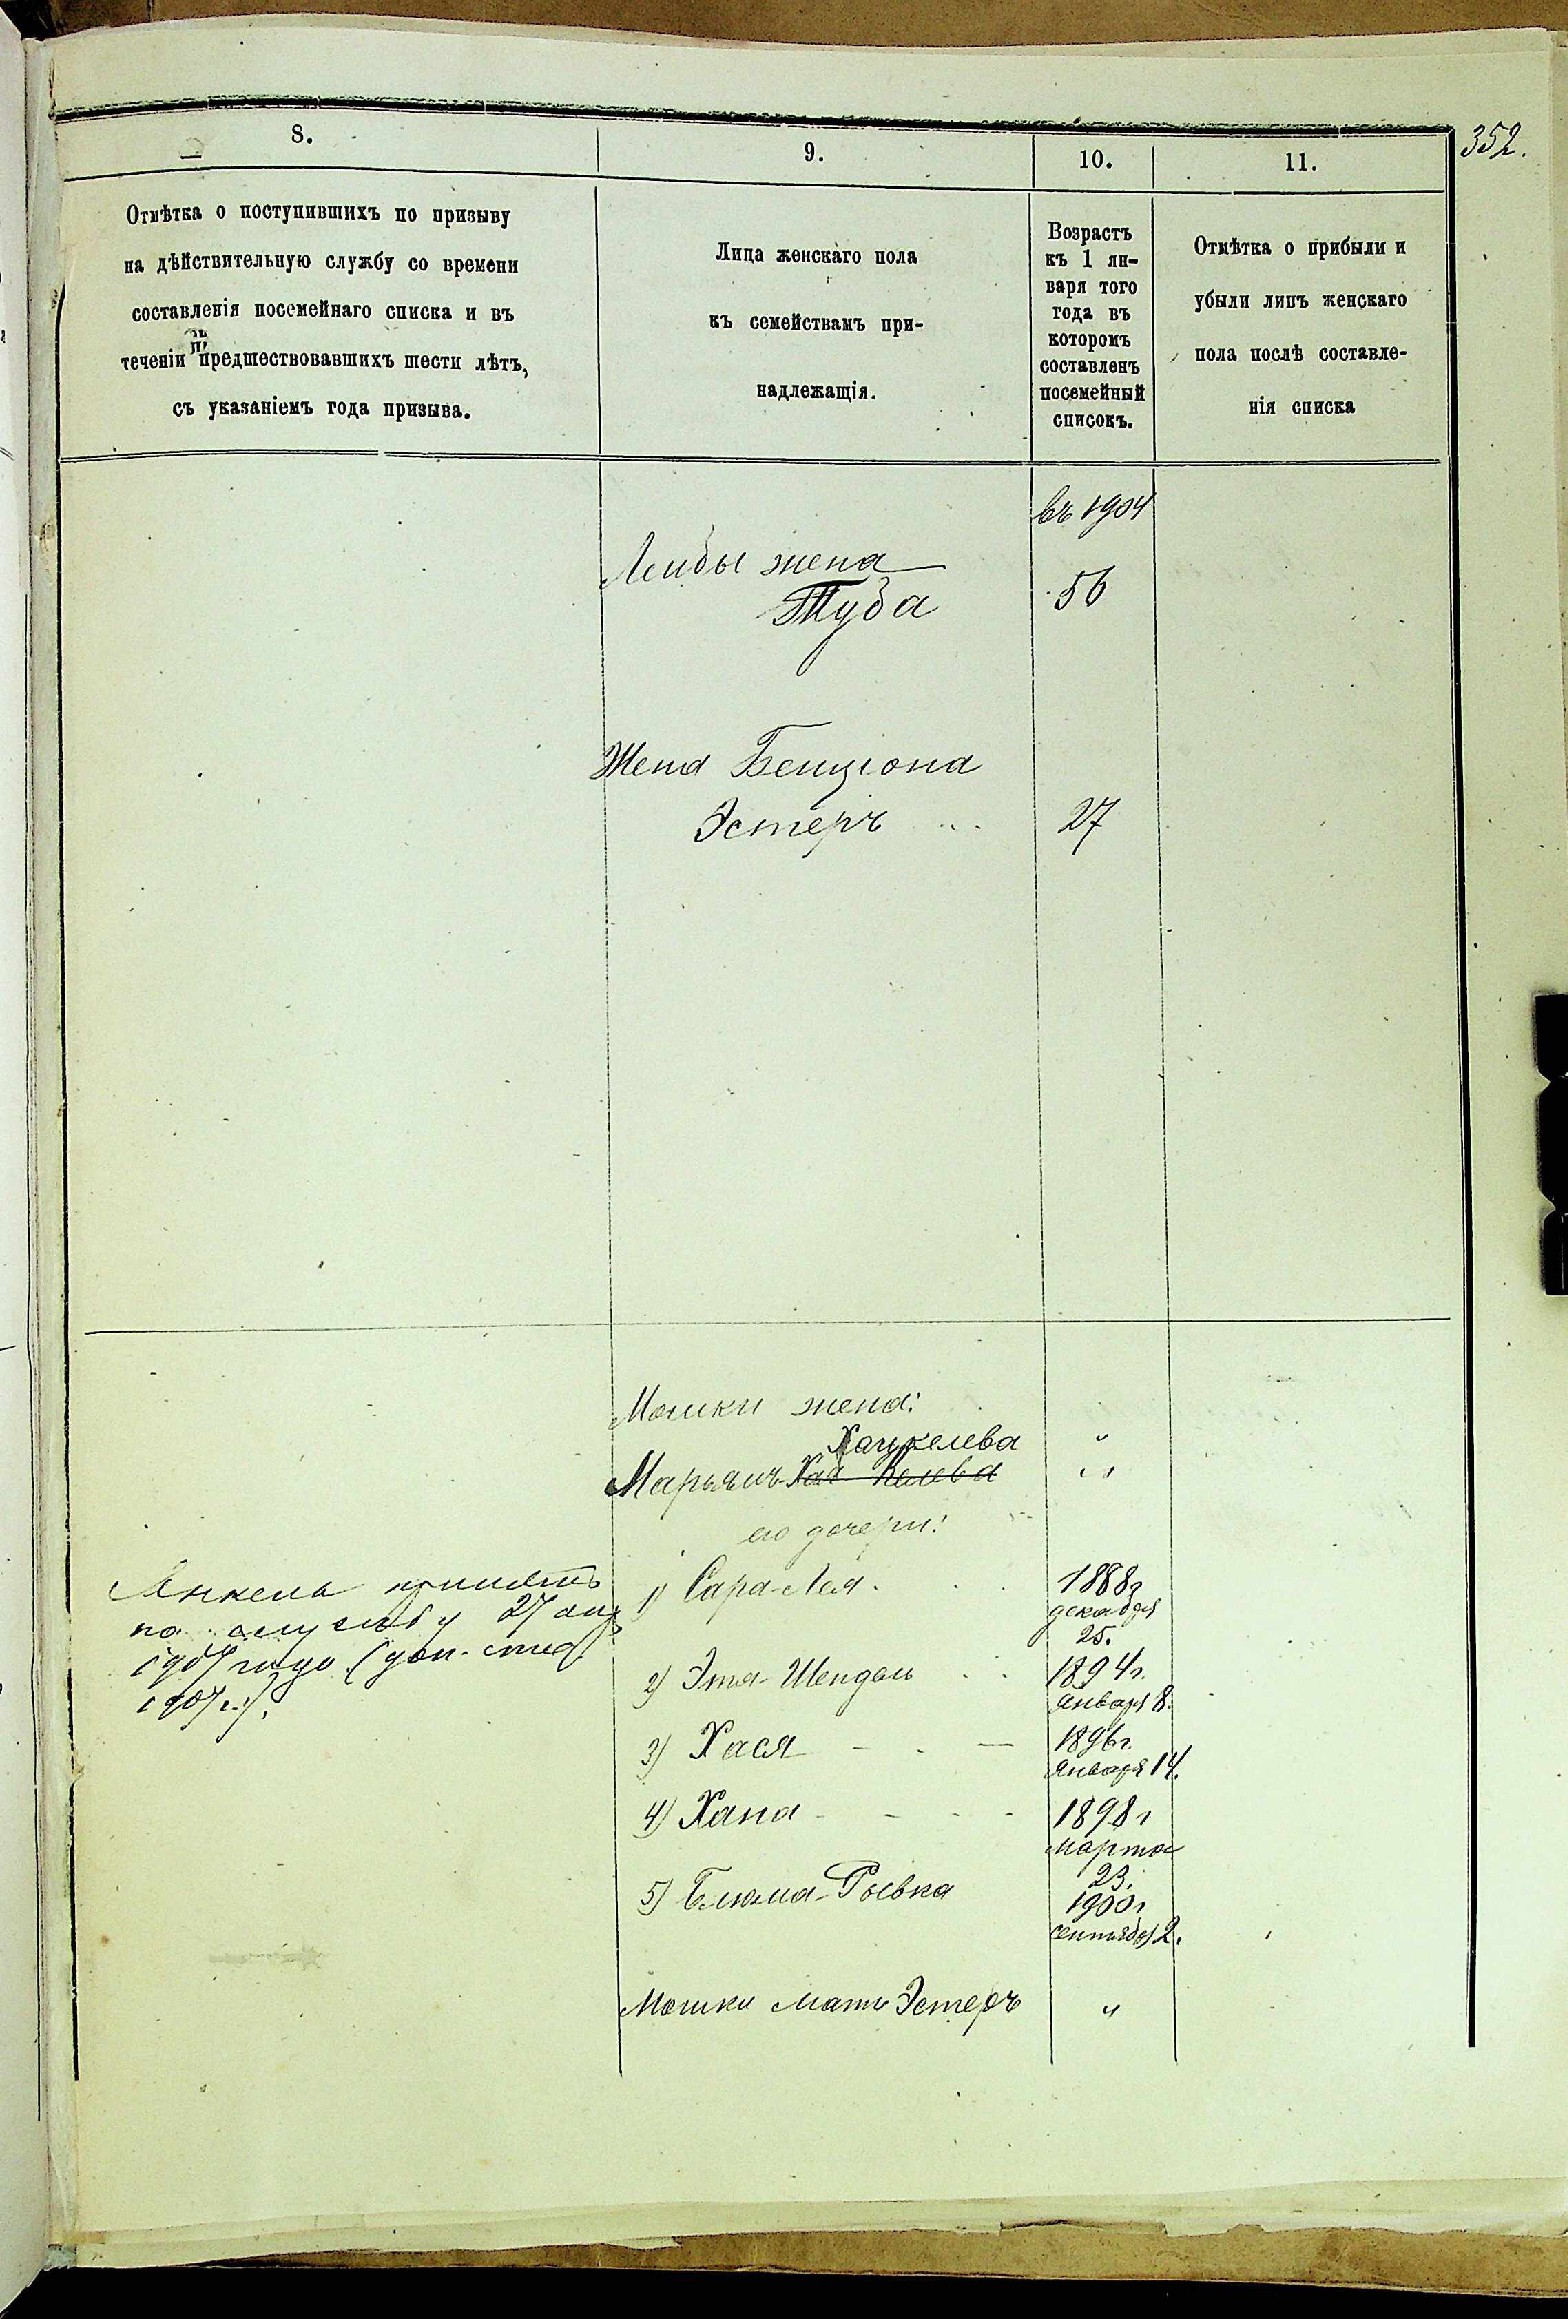 352.
8.
9.
10.
11.
Отмѣтка о поступившихъ по призыву
на дѣйствительную службу со времени
составленія посемейнаго списка и въ
теченіи предшествовавшихъ шести лѣтъ,
съ указаніемъ года призыва.
Лица женскаго пола
къ семействамъ при-
надлежащія.
Возрастъ
къ 1 ян-
варя того
года въ
которомъ
составленъ
посемейный
списокъ.
Отмѣтка о прибыли и
убыли лицъ женскаго
пола послѣ составле-
нія списка
въ 1904
Лейбы жена
Туба 56
Жена Бенціона
Эстеръ 27
Мошки жена:
Хацкелева "
Марьямъ "
его дочери:
Янкель принятъ
на службу 27
1907 года
1907 г.).
1) Сара-Лея 1888 г
декабря
25.
2) Эта-Шендель 1894 г.
января 8.
3) Хася 1896 г.
января 14.
4) Хана 1898 г
марта
23.
5) Блюма-Рывка 1900 г
сентября 2.
Мошки мать Эстеръ "